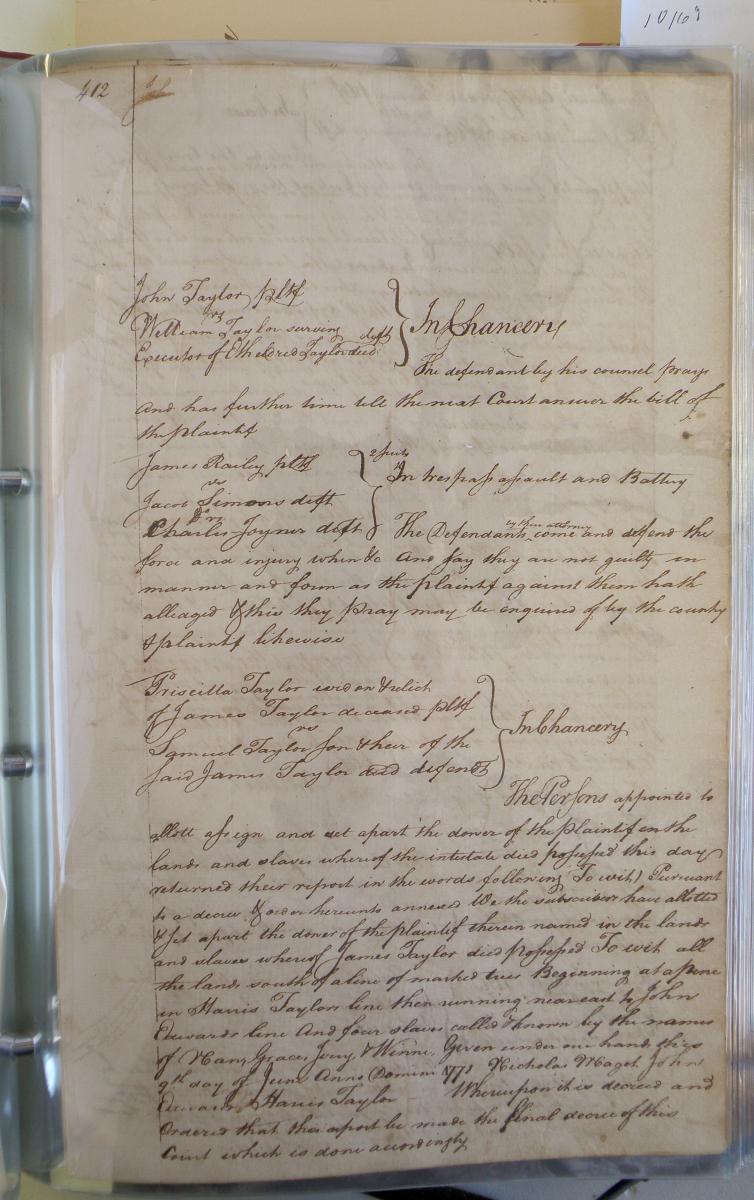 10/69
412
John Taylor pltf
vs
William Taylor surviving deft
Executor of Etheldred Taylor decd
In Chancery
The defendant by his counsel prays
And has further time till the next Court answer the bill of
the plaintif
James Railey pltf
vs
Jacob Simons deft
vs
Charles Joyner deft
2 suits
In trespass assault and Battery
The Defendants by their attorney come and defend the
force and injury when &c And say they are not guilty in
manner and form as the plaintif against them hath
alleaged & this they pray may be enquired of by the county
& plaintif likewise
Priscilla Taylor widow & relict
of James Taylor deceased pltf
vs
Samuel Taylor son & heir of the
said James Taylor decd defendt
In Chancery
The Persons appointed to
allott assign and set apart the dower of the plaintif in the
lands and slaves whereof the intestate died possessed this day
returned their report in the words following To wit) Pursuant
to a decree & order hereunto annexed We the subscribers have allotted
& set apart the dower of the plaintif therein named in the lands
and slaves whereof James Taylor died possessed To wit all
the lands south of a line of marked trees Beginning at a pine
in Harris Taylors line then running near east to John
Edwards line And four slaves called & known by the names
of Nan, Grace, & Winne. Given under our hands this
9th day of June Anno Domini Nicholas Maget John
Edwards, Harris Taylor Whereupon it is decreed and
Ordered that this report be made the final decree of this
Court which is done accordingly